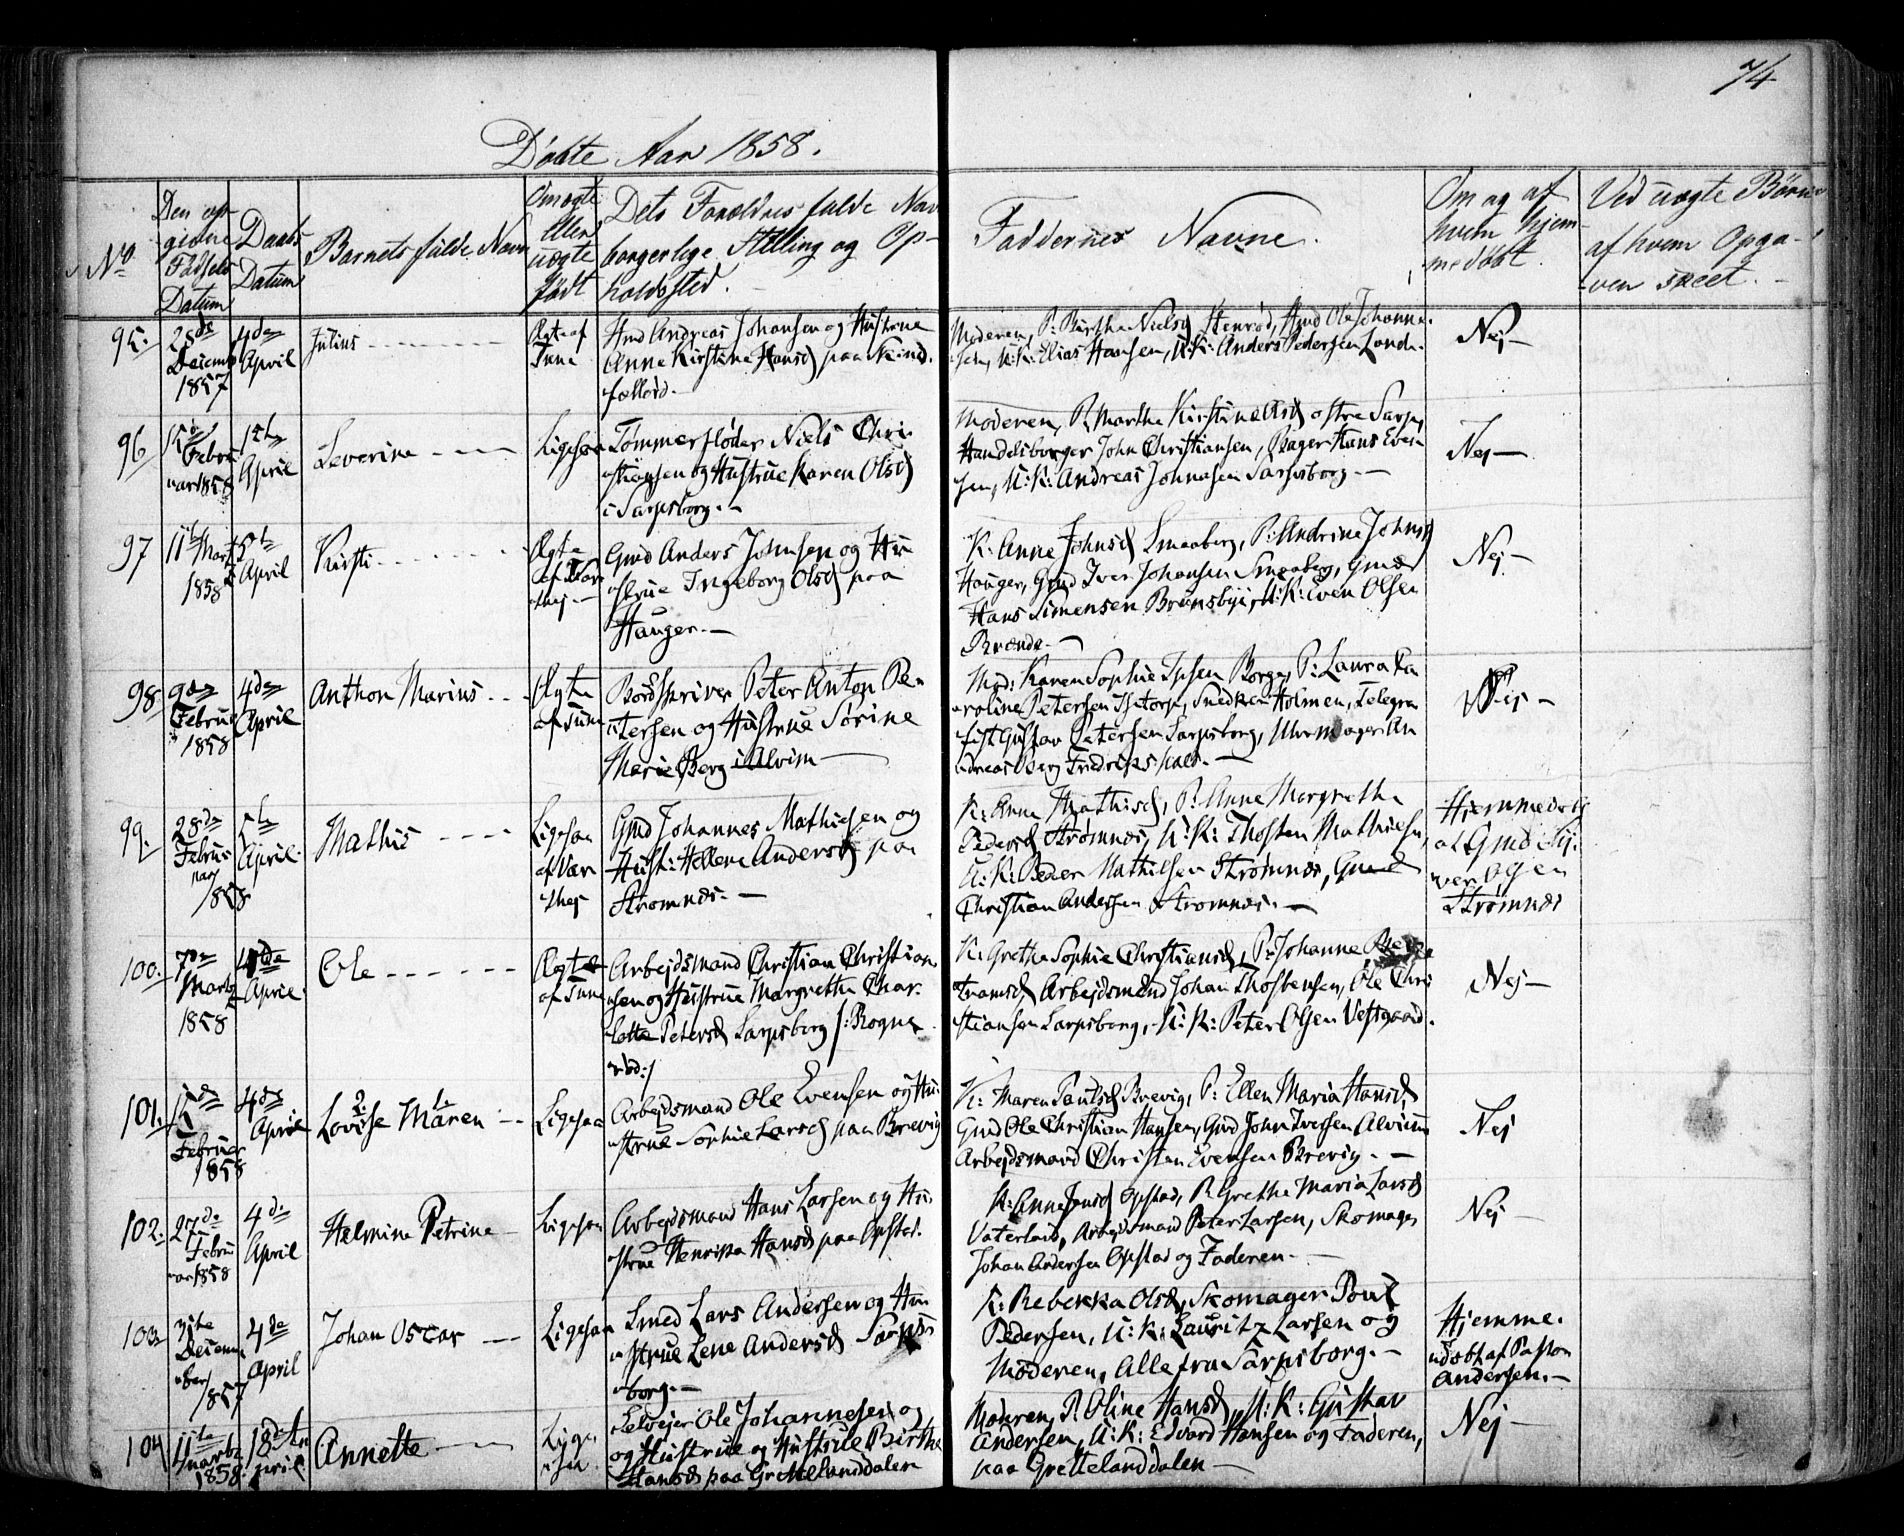 74
Døbte Aar 1858.
No
Den op-
givne
Fødsels
Datum
Daabs
Datum
Barnets fulde Navn
Om ægte
Eller
uægte
født
Dets Forældres fulde Navn
borgerlige Stilling og Op-
holdssted.
Faddernes Navne.
Om og af
hvem hjem-
medøbt.
Ved uægte Børn
af hvem Opga-
ven skeet.
95.
28de
Decemb
1857
4de
April
Julius
Ægte af
Tune
Gmd Andreas Johansen og Hustrue
Anne Kirstine Hansd paa
Moderen, P. Birthe Nielsd Henrød, Gmd Ole Johanne-
sen, U.K. Elias Hansen, U.K: Anders Pedersen Lande.
Nej
96
Febru
uar 1858
5te
April
Severine
Ligesaa
Tømmerfløder Niels Chri-
stiansen og Hustrue Karen Olsd
i Sarpsborg.
Moderen, P. Marthe Kirstine Olsd
Handelsborger John Christiansen, Bager Hans Even
sen, U.K: Andreas Johnasen Sarpsborg.
Nej
97
11te Marts
1858
5te
April
Kirsti
Ægte
af Var
thej
Gmd Anders Johnsen og Hu
strue Ingeborg Olsd paa
Hauger.
K: Anne Johnsd Smaaberg, P: Andrine Johnsd
Hauger, Gmd Iver Johansen Smaaberg, Gmd
Hans Simensen Brunsbyi, U:K: Even Olsen
Brænde.
Nej
98
9de
Febru
1858
4de
April
Anthon Marius
Ægte
af Tune
Bordskriver Peter Anton Pe-
tersen og Hustrue Sørine
Marie Berg i Alvim
Mod: Karen Sophie Ipsen Borge, P: Laura Ca
roline Petersen Istorp, Snedker Holmen, Telegra
fist Gustav Petersen Sarpsborg, Uhrmager An
dreas Berg Fredrikshald.
Nej
99.
28de
Febru
uar
1858
5te
April.
Mathis
Ligesaa
af Var
thej
Gmd Johannes Mathiesen og
Hust: Hellene Andersd paa
Strømnæs.
K: Anne Mathisd, P. Anne Margrethe
Pedersd Strømnæs, U.K: Thosten Mathiesen,
U.K: Peder Mathiesen Strømnæs, Gmd
Christian Andersen Strømnæs.
Hjemmedøbt
af Gmd Sy-
ver Olsen
Strømnæs
100.
7de
Marts
1858
4de
April
Ole
Ægte
af Tune
Arbejdsmand Christian Christian
sen og Hustrue Margrethe Char-
lotte Petersd Sarpsborg /: Rogne
rød:/
K: Grethe Sophie Christiansd, P: Johanne
Arbejdsmand Johan Thostensen, Ole Chri
stiansen Sarpsborg, U: K: Peter Olsen Vestgaard.
Nej
101.
Februar
1858
4de
April
2. 1.
Lovise Maren
Ligesaa
Arbejdsmand Ole Evensen og Hu-
strue Sophie Larsd paa Brevig
K: Maren Paulsd Brevig, P: Ellen Maria Hansd,
Gmd Ole Christian Hansen, Gmd John Iversen Alvim
Arbejdsmand Christen Evensen Brevig.
Nej
102.
27de
Febru
uar 1858
4de
April
Helmine Petrine
Ligesaa
Arbejdsmand Hans Larsen og Hu-
strue Henrikka Hansd paa Opstad.
K: Anne Jensd Opstad, P. Grethe Maria Larsd
Vaterland, Arbejdsmand Peter Larsen, Skomager
Johan Andersen Opstad og Faderen.
Nej
103
Decem
ber
1857
4de
April
Johan Oscar
Ligesaa
Smed Lars Andersen og Hu-
strue Lene Andersd Sarps
borg.
K: Rebekka Olsd, Skomager Poul
Pedersen, U: K: Lauritz Larsen og
Moderen, alle fra Sarpsborg.
Hjemme-
døbt af Pastor
Andersen.
104
11te
Marts
1858.
18de
April
Annette
Lige
saa
Selvejer Ole Johannesen og
og Hustrue og Hustrue Birthe
Hansd paa Grettelanddalen
Moderen, P. Oline Hansd, U: K: Gustav
Andersen, U: K: Edvard Hansen og Faderen,
paa Grettelanddalen
Nej